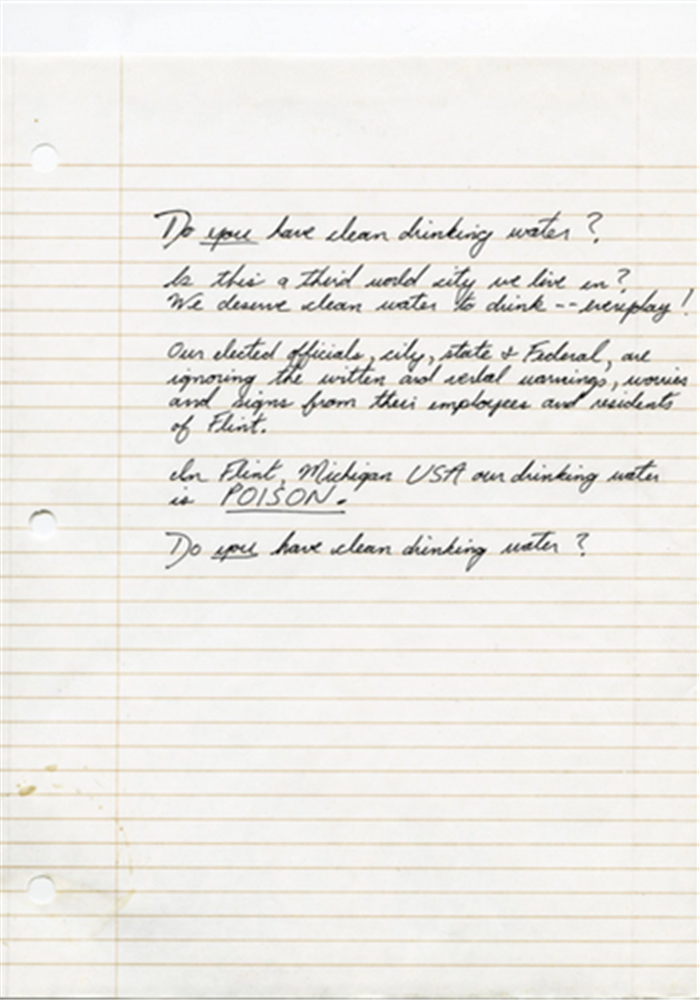 Do you have clean drinking water?
Is this a third world city we live in?
We deserve clean water to drink -- everyday!
Our elected officials, city, state & Federal, are
ignoring the written and verbal warnings, worries
and signs from their employees and residents
of Flint.
In Flint, Michigan USA our drinking water
is POISON.
Do you have clean drinking water?